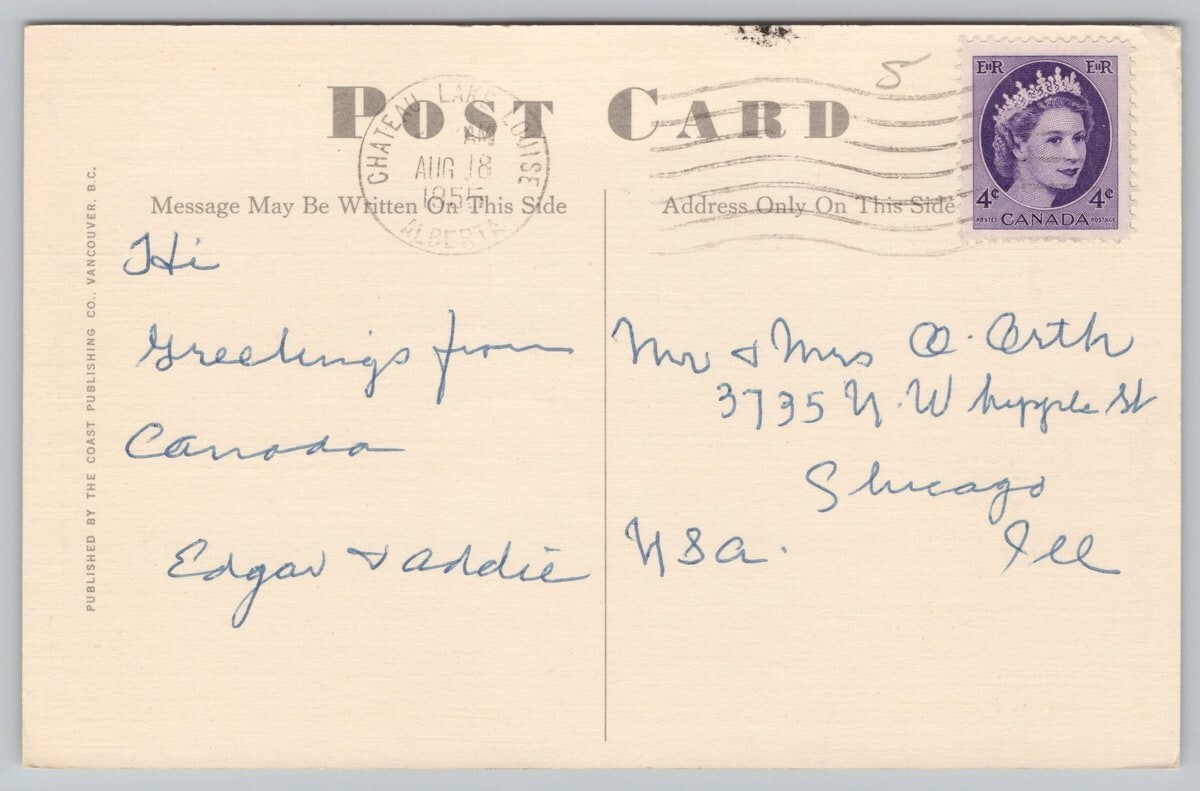 POST CARD
CHATEAU LAKE LOUISE
AM
AUG 18
1955
ALBERTA
5
EIIR EIIR
4¢ 4¢
POSTES CANADA POSTAGE
Message May Be Written On This Side
Address Only On This Side
PUBLISHED BY THE COAST PUBLISHING CO., VANCOUVER, B.C.
Hi
Greetings from
Canada
Edgar & Addie
Mr & Mrs O. Orth
3735 N. Whipple St
Chicago
USA. Ill